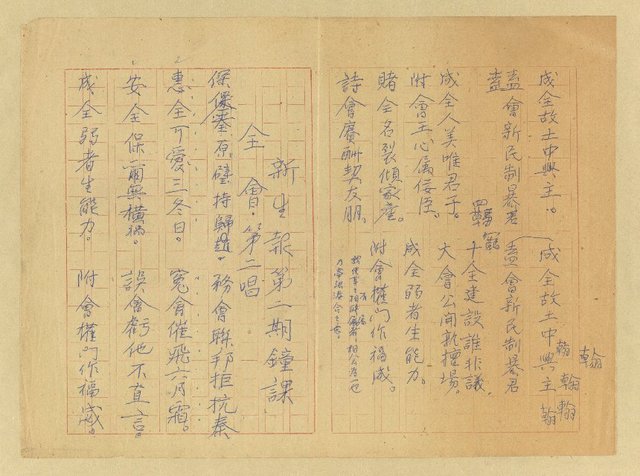 成全故土中興主。成全故土中興主
翰
翰翰翰
盍會新民制暴君 盍會新民制暴君
成全人美唯君子。十全建設誰非議
附會王心属佞臣。大會公開執擅場。
賭全名裂傾家產。成全弱者生能力。
詩會賡酬契友朋。附會權門作福威。
新生報第二期鐘課
全會·第二唱
保全 原璧持歸趙。務會聯邦拒抗秦
2 惠全可愛三冬日。冤會催飛六月霜。
1 安全保爾無橫禍。誤會虧他不直言。
成全弱者生能力。附會權門作福威。